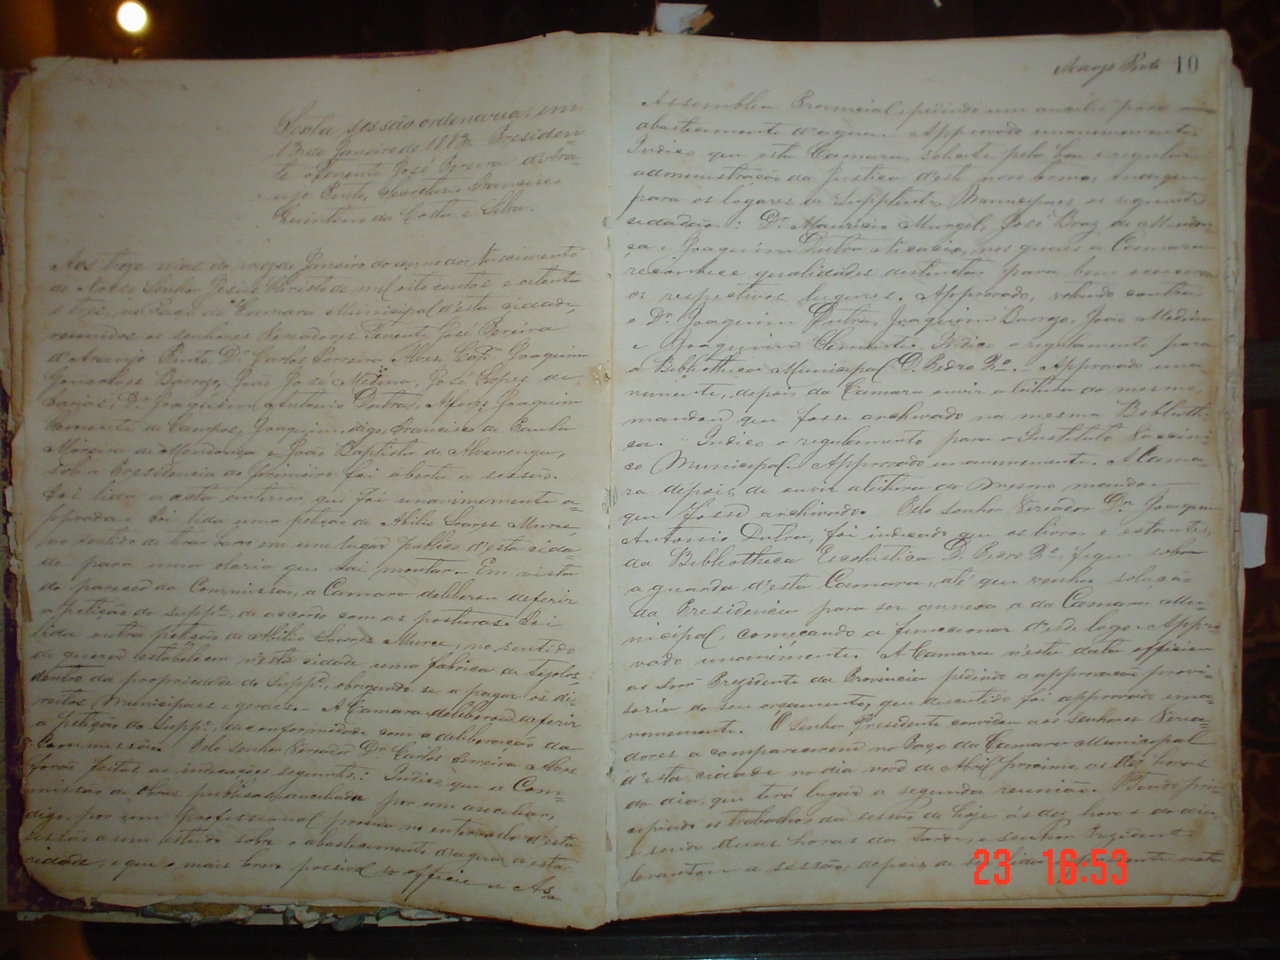 Sexta sessão ordenaria, em
13 de Janeiro de 1883. Presiden-
te o Tenente José Pereira de Ara-
ujo Pinto, Secretario Francisco
Quintino da Costa e Silva.
Aos treze dias do mez de Janeiro do anno do Nascimento
de Nosso Senhor Jesus Christo de mil oito centos e oitenta
e tres, no Paço da Camara Municipal d'esta cidade,
reunidos os senhores Vereadores Tenente José Pereira
d'Araujo Pinto, Dr. Carlos Ferreira Alves, Capm. Joaquim
Gonçalves Barroso, João José Medina, José Lopes de
Farias, Dr. Joaquim Antonio Dutra, Alferes Joaquim
Clemente de Campos, Joaquim, digo, Francisco de Paula
Moreira de Mendonça e João Baptista de Alvarenga,
sob a Presidencia do primeiro foi aberta a sessão.
Foi lida a acta anterior que foi unanimemente a-
pprovada. Foi lida uma petição de Abilio Soares Murce,
no sentido de tirar barro em um lugar publico d'esta cida-
de para uma olaria que vai montar. Em vista
do parecer da Commissão, a Camara deliberou deferir
a petição do suppe. de accordo com as posturas. Foi
lida outra petição de Abilio Soares Murce, no sentido
de querer estabelecer n'esta cidade uma fabrica de tijolos
dentro da propriedade do Suppe., obrigando-se a pagar os di-
reitos Municipaes e geraes. A Camara deliberou deferir
a petição do Suppe., de conformidade com a deliberação da
Commissão. Pelo senhor Vereador Dr. Carlos Ferreira Alves
forão feitas as indicações seguintes: Indico que a Com-
missão de obras publicas, auxiliada por um auxiliar,
digo, por um profissional proceda no intervalo d'esta
sessão a um estudo sobre o abastecimento d'agua d'esta
cidade, e que o mais breve possivel se officie a As-
Araujo Pinto 10
Assembléa Provincial, pedindo um auxilio para
abastecimento d'agua. Approvado unanimemente.
Indico que esta Camara, solicita pela boa e regular
administração da Justiça d'este novo termo, indique
para os logares de Supplentes Municipaes os seguintes
cidadãos: Dr. Mauricio Murgel, José Braz de Mendon-
ça e Joaquim Dutra Nicacio, nos quaes a Camara
reconhece qualidades distinctas para bem exercerem
os respectivos lugares. Approvado, votando contra
o Dr. Joaquim Dutra, Joaquim Barroso, João Medina
e Joaquim Clemente. Indico o regulamento para
a Bibliotheca Municipal D. Pedro 2º. Approvado una-
nemente, depois da Camara ouvir a leitura do mesmo,
mandou que fosse archivado na mesma Bibliothe-
ca. Indico o regulamento para o Instituto Vaccini-
co Municipal. Approvado unanimemente. A Cama-
ra depois de ouvir a leitura do mesmo mandou
que fosse archivado. Pelo senhor Vereador Dr. Joaquim
Antonio Dutra, foi indicado que os livros e estantes
da Bibliotheca Escholastica D. Pedro 2º, fiquem sob
a guarda d'esta Camara, até que venha solução
da Presidencia para ser annexa a da Camara Mu-
nicipal, começando a funccionar d'esde logo. Appro-
vado unanimemente. A Camara n'esta data officiou
ao Snr. Presidente da Provincia pedindo a approvação provi-
soria do seu orçamento, que discutido foi approvado una-
nimemente. O Senhor Presidente convidou aos Senhores Verea-
dores a comparecerem no Paço da Camara Municipal
d'esta cidade no dia nove de Abril proximo, as dez horas
do dia, que terá lugar a segunda reunião. Tendo prin-
cipiado os trabalhos da sessão de hoje ás dez horas do dia,
e sendo duas horas da tarde, o senhor Presidente
levantou a sessão, depois de lida a presente acta
23 16:53